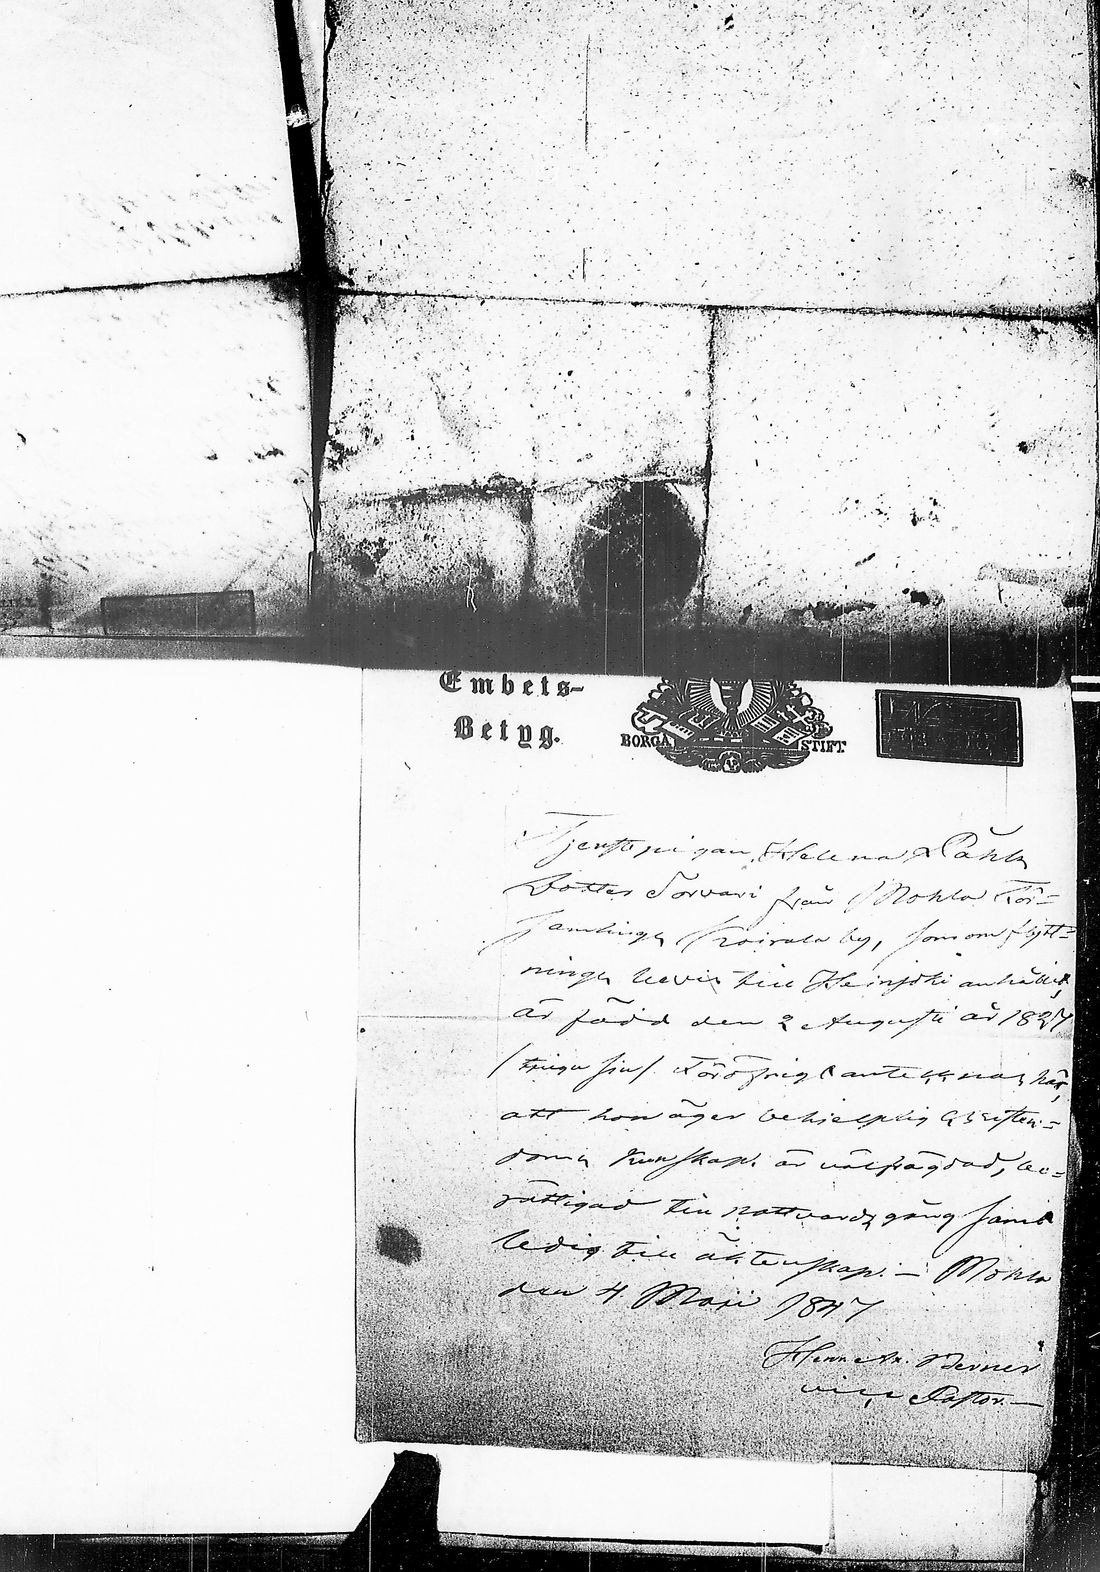 Embets-
Betyg.
BORGÅ STIFT
Tjenstepigan, Helena Påhls
dotter Torvari från Mohla För-
samlings Koirala by, som om flytt-
nings bevis till Heinjoki anhållit,
är född den 2 Augusti år 1827
/tjugu sju/. Föröfrigt antecknas här,
att hon äger behjelplig Christen-
doms kunskap, är välfrägdad, be-
rättigad till nattvards gång samt
ledig till äktenskap. — Mohla
den 4 Maji 1847
Henr. Berner
vice Pastor. —